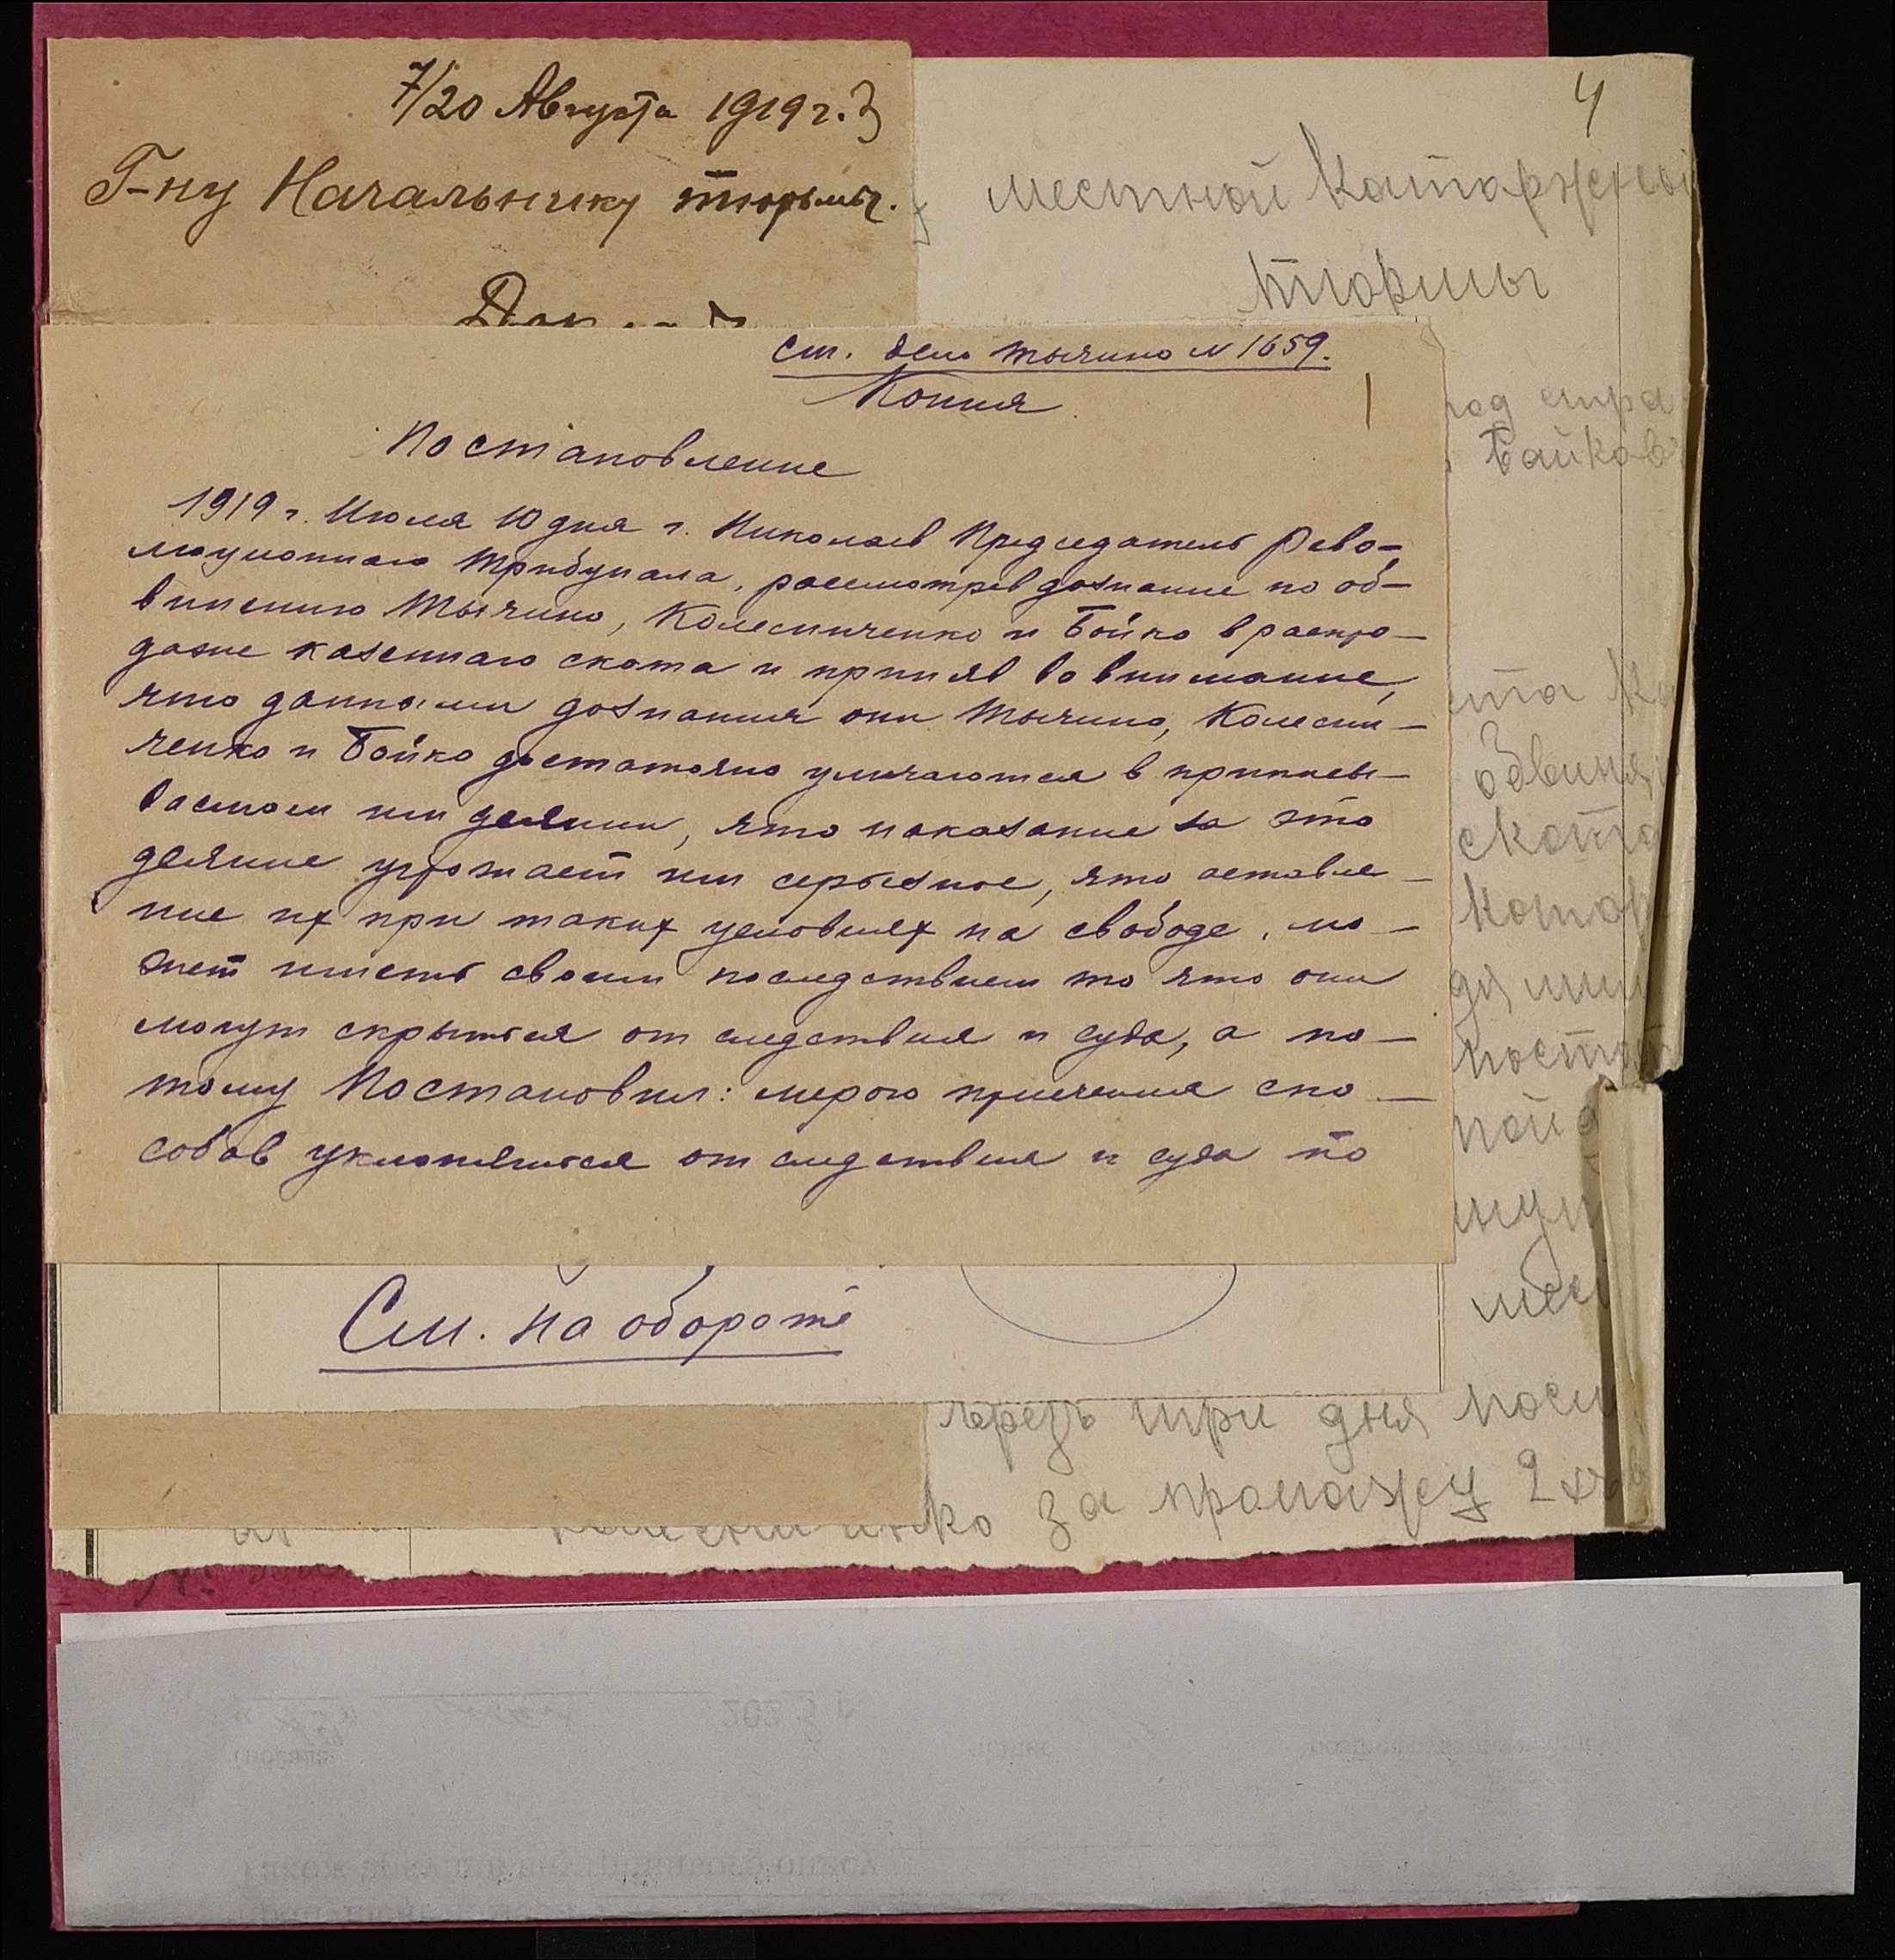 7/20 Августа 1919 г. 3
Г-ну Начальнику тюрьмы.
4
местной Каторжной
тюрьмы
см. дело Тычино N 1659.
Копия
1
Постановление
1919 г. Июля 10 дня г. Николаев Председатель Рево-
люционнаго Трибунала, рассмотрев дознание по об-
винению Тычино, Колесниченко и Бойко в распро-
даже казеннаго скота и приняв во внимание,
что данными дознания они Тычино, Колесни-
ченко и Бойко достаточно уличаются в приписы-
ваемом им деянии, что наказание за это
деяние угрожает им серьезное, что оставле-
ние их при таких условиях на свободе, мо-
жет иметь своим последствием то что они
могут скрыться от следствия и суда, а по-
тому Постановил: мерою пресечения спо-
собов уклоняться от следствия и суда по
под стра
Байков
Обвиня
скота
Котор
См. на оборотѣ
черезъ три дня посл
за пропажу 2х